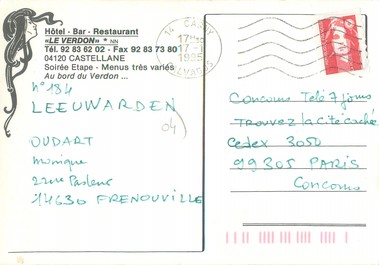 Hôtel - Bar - Restaurant
«LE VERDON» * NN
Tél. 92 83 62 02 - Fax 92 83 73 80
04120 CASTELLANE
Soirée Etape - Menus très variés
Au bord du Verdon ...
14 CAGNY
17H
17 -1
1995
CALVADOS
n° 184
LEEUWARDEN
04
OUDART
Monique
22 rue Pasteur
14630 FRENOUVILLE
Concours Télé 7 jours
TROUVEZ LA Cité cachée
Cedex 3050
99305 PARIS
Concours